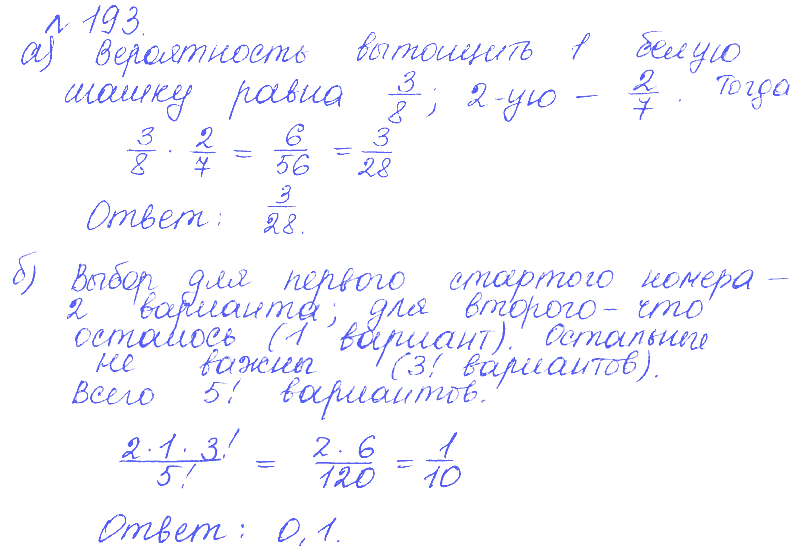 № 193.
а) Вероятность вытощить 1 белую
шашку равна 3/8; 2-ую – 2/7. Тогда
3/8 · 2/7 = 6/56 = 3/28
Ответ: 3/28.
б) Выбор для первого стартого номера –
2 варианта; для второго – что
осталось (1 вариант). Остальные
не важны (3! вариантов).
Всего 5! вариантов.
2·1·3!/5! = 2·6/120 = 1/10
Ответ: 0,1.